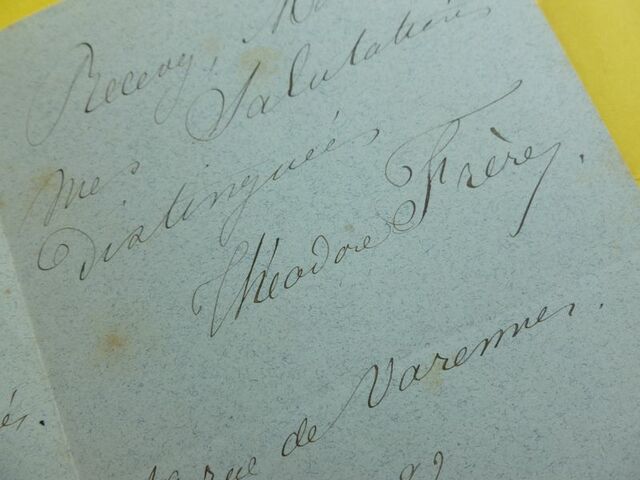 Recevez,
mes Salutations
Distinguées
Théodore Frère.
rue de Varennes.
és.